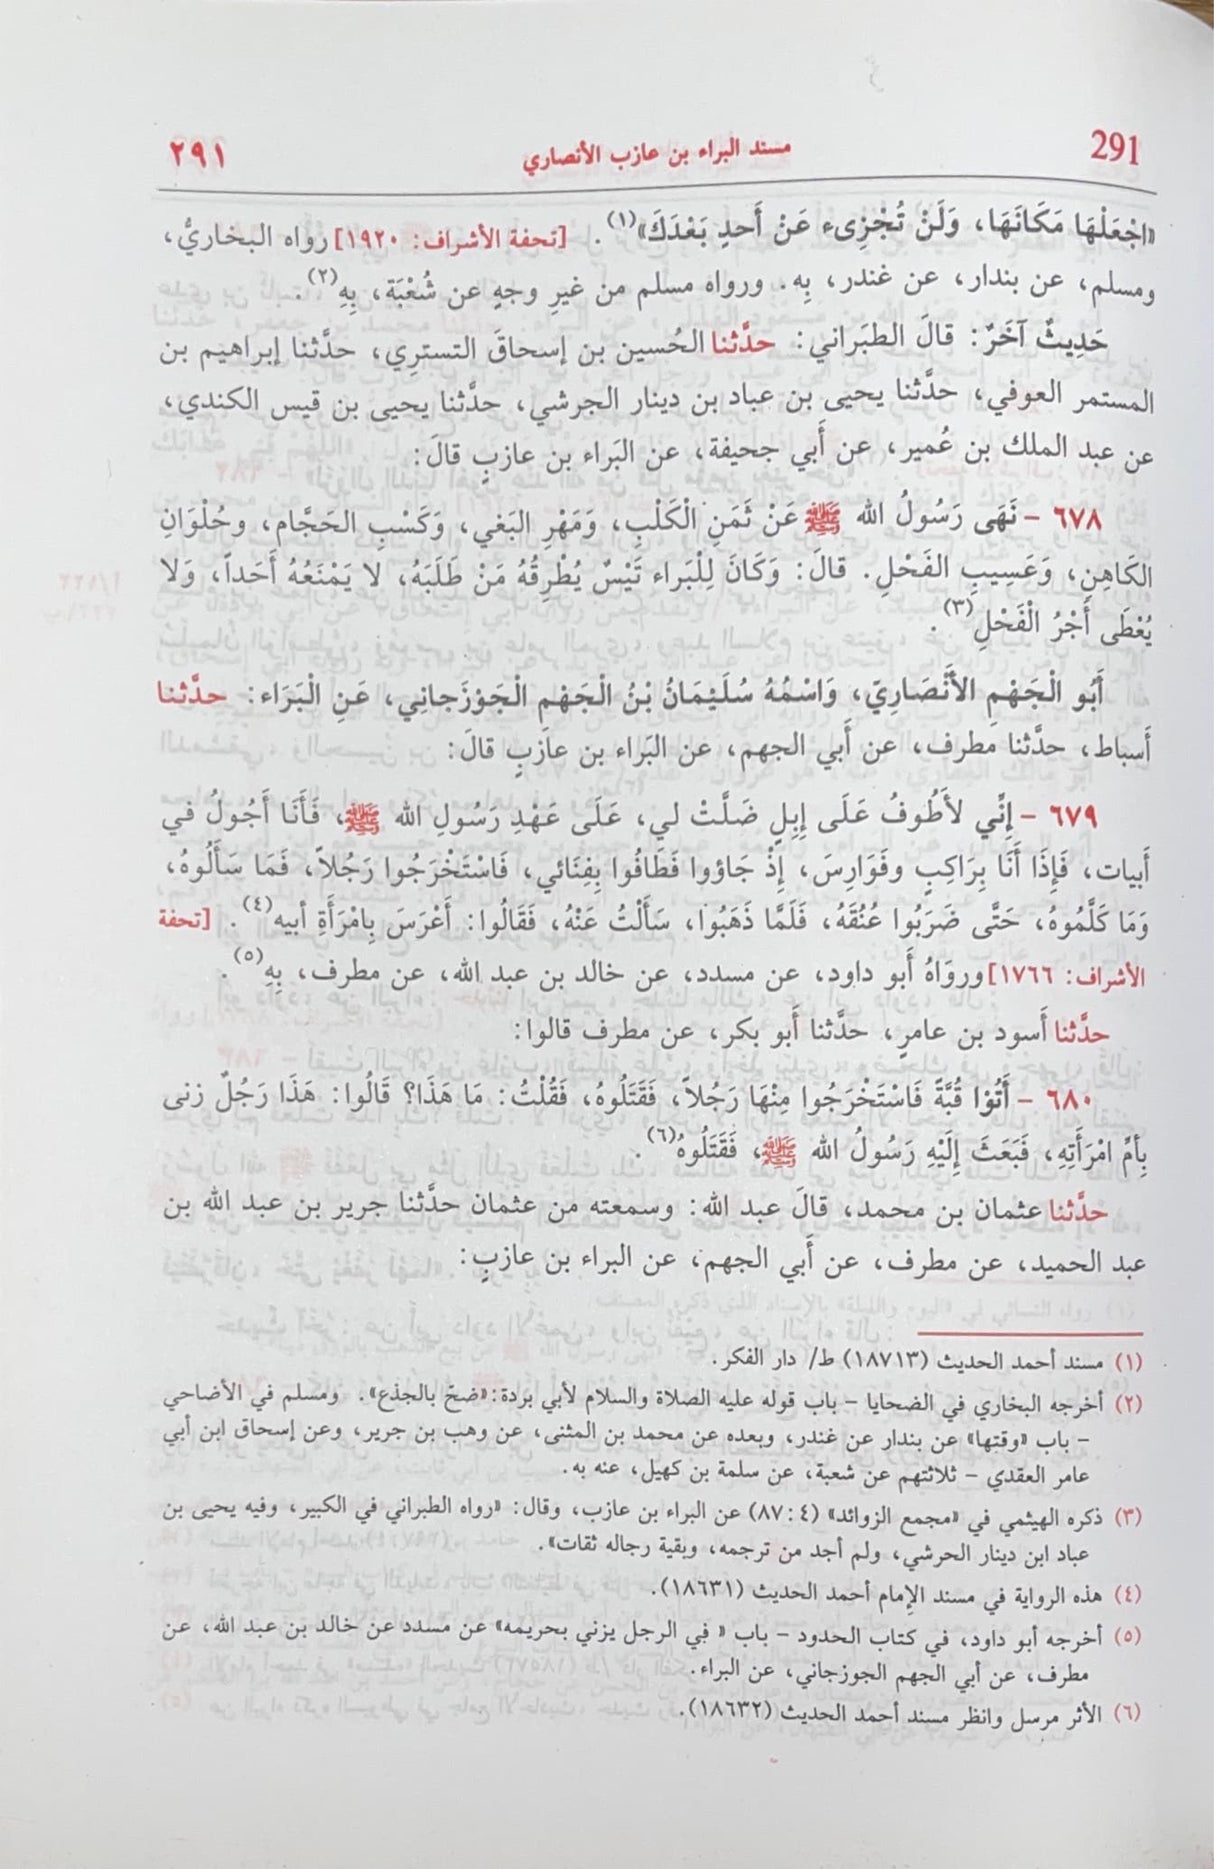 291 مسند البراء بن عازب الأنصاري ٢٩١
«اجْعَلْهَا مَكَانَهَا، وَلَنْ تُجْزِىء عَنْ أَحدٍ بَعْدَكَ»(١). [تحفة الأشراف: ١٩٢٠] رواه البخاريُّ،
ومسلم، عن بندار، عن غندر، بِه. ورواه مسلم من غيرِ وجهٍ عن شُعْبَة، بِهِ(٢).
حَدِيثٌ آخَرٌ: قالَ الطبَراني: حدَّثنا الحُسين بن إسحاقَ التسترِي، حدَّثنا إبراهيم بن
المستمر العوفي، حدَّثنا يحيى بن عباد بن دينار الجرشي، حدَّثنا يحيى بن قيس الكندي،
عن عبد الملك بن عُمير، عن أَبي جحيفة، عن البَراء بن عازبٍ قالَ:
٦٧٨ - نَهَى رَسُولُ الله ﷺ عَنْ ثَمَنِ الْكَلْبِ، وَمَهْرِ البَغي، وَكَسْبِ الحَجَّام، وحُلْوَانِ
الكَاهِنِ، وَعَسِيبِ الفَحْلِ. قالَ: وَكَانَ لِلْبَراء تَيْسٌ يُطْرِقُهُ مَنْ طَلَبَهُ، لا يَمْنَعُهُ أَحَداً، وَلا
يُعْطَى أَجْرُ الْفَحْلِ(٣).
أَبُو الْجَهْمِ الأَنْصَارِيّ، وَاسْمُهُ سُلَيْمَانُ بْنُ الْجَهْمِ الْجَوْزَجانِي، عَنِ الْبَرَاء: حدَّثنا
أَسباط، حدَّثنا مطرف، عن أَبي الجهم، عن البَراء بن عازبٍ قالَ:
٦٧٩ - إِنِّي لأَطُوفُ عَلَى إِبِلٍ ضَلَّتْ لي، عَلَى عَهْدِ رَسُولِ الله ﷺ، فَأَنَا أَجُولُ في
أَبيات، فَإِذَا أَنَا بِرَاكِبٍ وفَوَارِسَ، إِذْ جَاؤوا فَطَافُوا بِفِنَائي، فَاسْتَخْرَجُوا رَجُلاً، فَمَا سَأَلُوهُ،
وَمَا كَلَّمُوهُ، حَتَّى ضَرَبُوا عُنُقَهُ، فَلَمَّا ذَهَبُوا، سَأَلْتُ عَنْهُ، فَقَالُوا: أَعْرَسَ بِامْرَأَةِ أبيه(٤). [تحفة
الأشراف: ١٧٦٦] ورواهُ أَبو داود، عن مسدد، عن خالد بن عبد الله، عن مطرف، بِهِ(٥).
حدَّثنا أَسود بن عامرٍ، حدَّثنا أَبو بكر، عن مطرف قالوا:
٦٨٠ - أَتُوْا قُبَّةً فَاسْتَخْرَجُوا مِنْهَا رَجُلاً، فَقَتَلُوهُ، فَقُلْتُ: مَا هَذَا؟ قَالُوا: هَذَا رَجُلٌ زنى
بِأمِّ امْرَأَتِهِ، فَبَعَثَ إِلَيْهِ رَسُولُ الله ﷺ، فَقَتَلُوهُ(٦).
حدَّثنا عثمان بن محمد، قالَ عبد الله: وسمعته من عثمان حدَّثنا جرير بن عبد الله بن
عبد الحميد، عن مطرف، عن أَبي الجهم، عن البراء بن عازبٍ:
(١) مسند أحمد الحديث (١٨٧١٣) ط/ دار الفكر.
(٢) أخرجه البخاري في الضحايا - باب قوله عليه الصلاة والسلام لأبي بردة: «ضحّ بالجذع». ومسلم في الأضاحي
- باب «وقتها» عن بندار عن غندر، وبعده عن محمد بن المثنى، عن وهب بن جرير، وعن إسحاق ابن أبي
عامر العقدي - ثلاثتهم عن شعبة، عن سلمة بن كهيل، عنه به.
(٣) ذكره الهيثمي في «مجمع الزوائد» (٤: ٨٧) عن البراء بن عازب، وقال: «رواه الطبراني في الكبير، وفيه يحيى بن
عباد ابن دينار الحرشي، ولم أجد من ترجمه، وبقية رجاله ثقات».
(٤) هذه الرواية في مسند الإمام أحمد الحديث (١٨٦٣١).
(٥) أخرجه أبو داود، في كتاب الحدود - باب « في الرجل يزني بحريمه» عن مسدد عن خالد بن عبد الله، عن
مطرف، عن أبي الجهم الجوزجاني، عن البراء.
(٦) الأثر مرسل وانظر مسند أحمد الحديث (١٨٦٣٢).